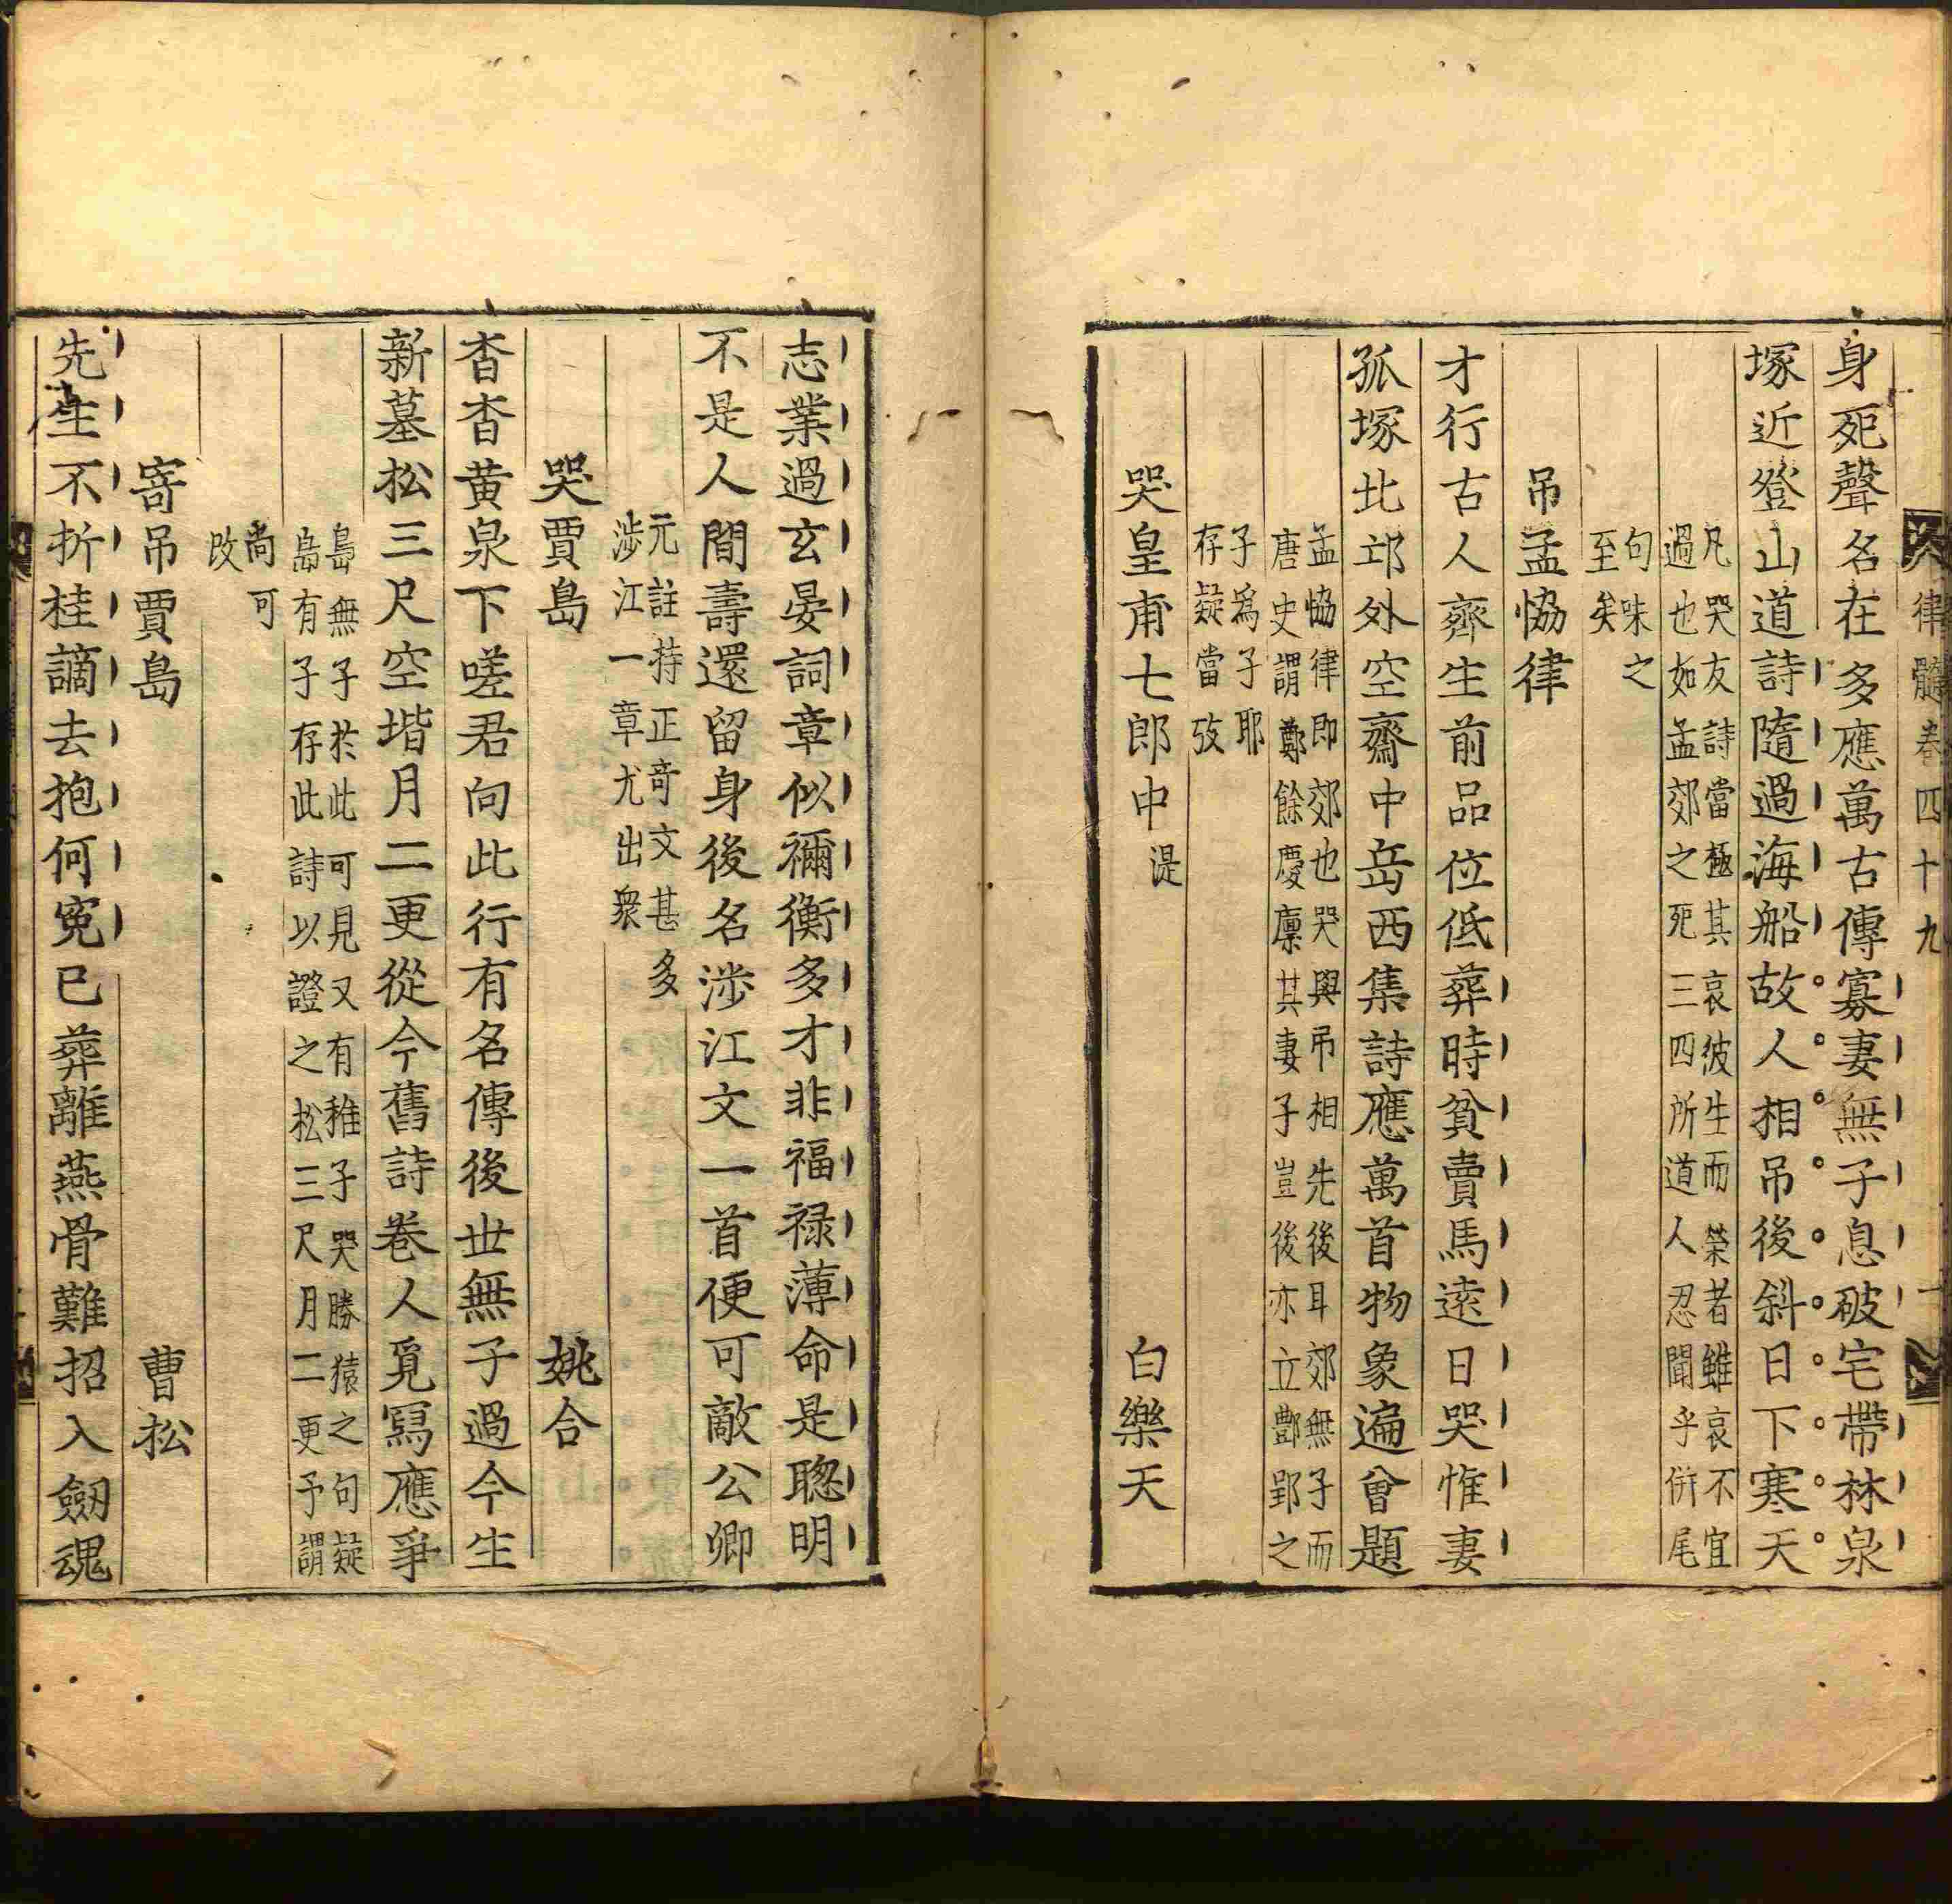 律髓卷四十九
身死聲名在多應萬古傳寡妻無子息破宅帶林泉
塚近登山道詩隨過海船故人相吊後斜日下寒天
凡哭友詩當極其哀彼生而榮者雖哀不宜
過也如孟郊之死三四所道人忍聞乎併尾
句味之
至矣
吊孟恊律
才行古人齊生前品位低葬時貧賣馬遠日哭惟妻
孤塚北邙外空齋中岳西集詩應萬首物象遍曾題
孟恊律即郊也哭與吊相先後耳郊無子而
唐史謂鄭餘慶廪其妻子豈後亦立酆郢之
子爲子耶
存疑當攷
哭皇甫七郎中湜 白樂天
志業過玄晏詞章似禰衡多才非福禄薄命是聰明
不是人間壽還留身後名涉江文一首便可敵公卿
元註持正奇文甚多
涉江一章尤出衆
哭賈島 姚合
杳杳黄泉下嗟君向此行有名傳後世無子過今生
新墓松三尺空堦月二更從今舊詩卷人覓寫應爭
島無子於此可見又有稚子哭勝猿之句疑
島有子存此詩以證之松三尺月二更予謂
尚可
改
寄吊賈島 曹松
先生不折桂謫去抱何寃已葬離燕骨難招入劔魂